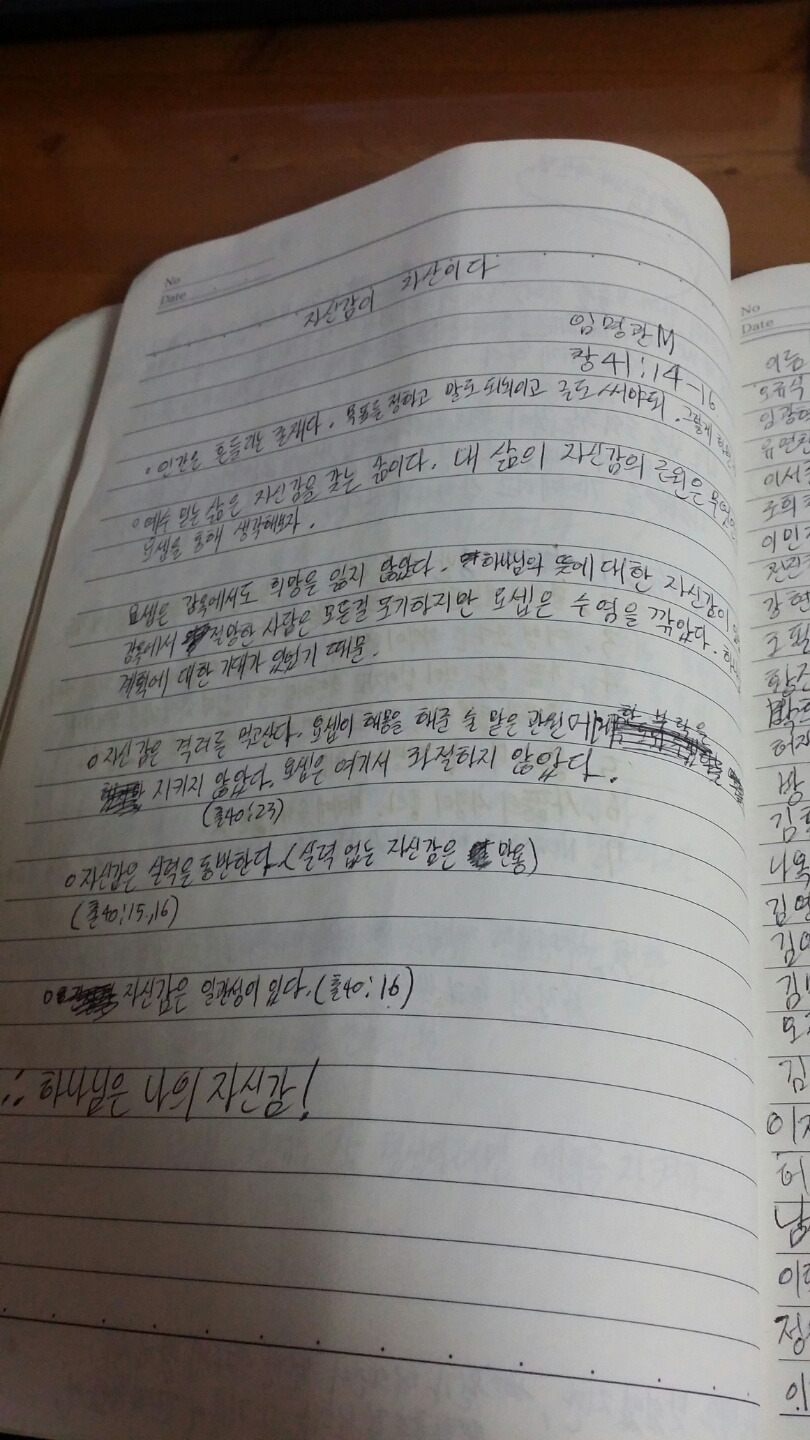 No
Date
자신감이 자산이다
임명관M
창41:14-16
◦인간은 흔들리는 존재다. 목표를 정하고 말도 되뇌이고 글도 써야돼. 그렇게
◦예수 믿는 삶은 자신감을 갖는 삶이다. 내 삶의 자신감의 근원은
요셉을 통해 생각해보자.
요셉은 감옥에서도 희망을 잃지 않았다. 하나님의 뜻에 대한 자신감이
감옥에서 절망한 사람은 모든걸 포기하지만 요셉은 수염을 깎았다.
계획에 대한 기대가 있었기 때문.
◦자신감은 격려를 먹고산다. 요셉이 해몽을 해준 술 맡은 관원 한 부탁을
지키지 않았다. 요셉은 여기서 좌절하지 않았다.
(출40:23)
◦자신감은 실력을 동반한다. (실력 없는 자신감은 만용)
(출40:15,16)
◦자신감은 일관성이 있다. (출40:16)
∴ 하나님은 나의 자신감!
No
Date
이름
임광
유연
이서
이민
강혜
조필
황
허재
방
김
나옥
김영
김
김
오
김
이
허
남
이
정
이